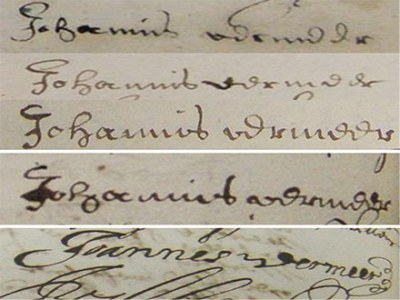 Johannis vermeer
Johannis vermeer
Johannis vermeer
Johannis vermeer
Jannes vermeer